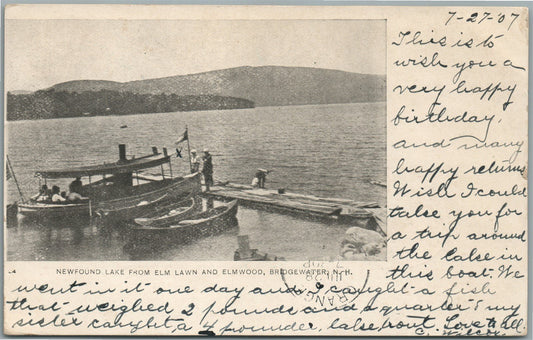 7-27-'07
This is to
wish you a
very happy
birthday,
and many
happy returns
Wish I could
take you for
a trip around
the lake in
this boat. We
NEWFOUND LAKE FROM ELM LAWN AND ELMWOOD, BRIDGEWATER, N.H.
went in it one day and caught a fish
that weighed 2 pounds and a quarter & my
sister caught, a 4 pounder, lake trout. Love to all.
C. Wilcox.